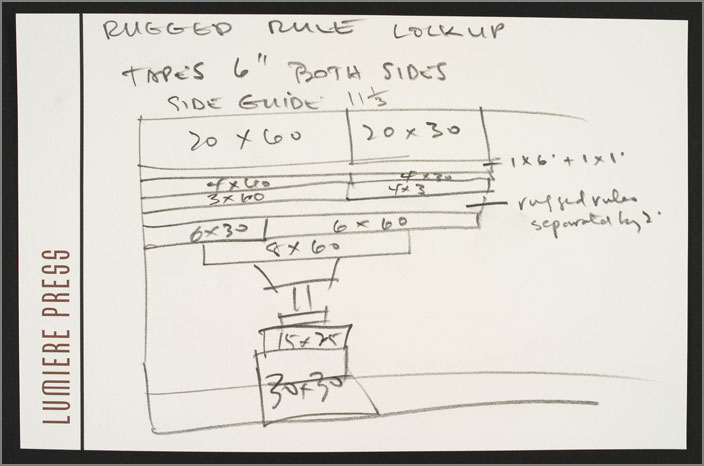 RUGGED RULE LOCKUP
TAPES 6" BOTH SIDES
SIDE GUIDE 11 1/3
20 x 60
20 x 30
1 x 6' + 1 x 1'
4 x 60
4 x 30
3 x 60
4 x 3
rugged rules
separated by 2'
6 x 30
6 x 60
8 x 60
15 x 25
30 x 30
LUMIERE PRESS